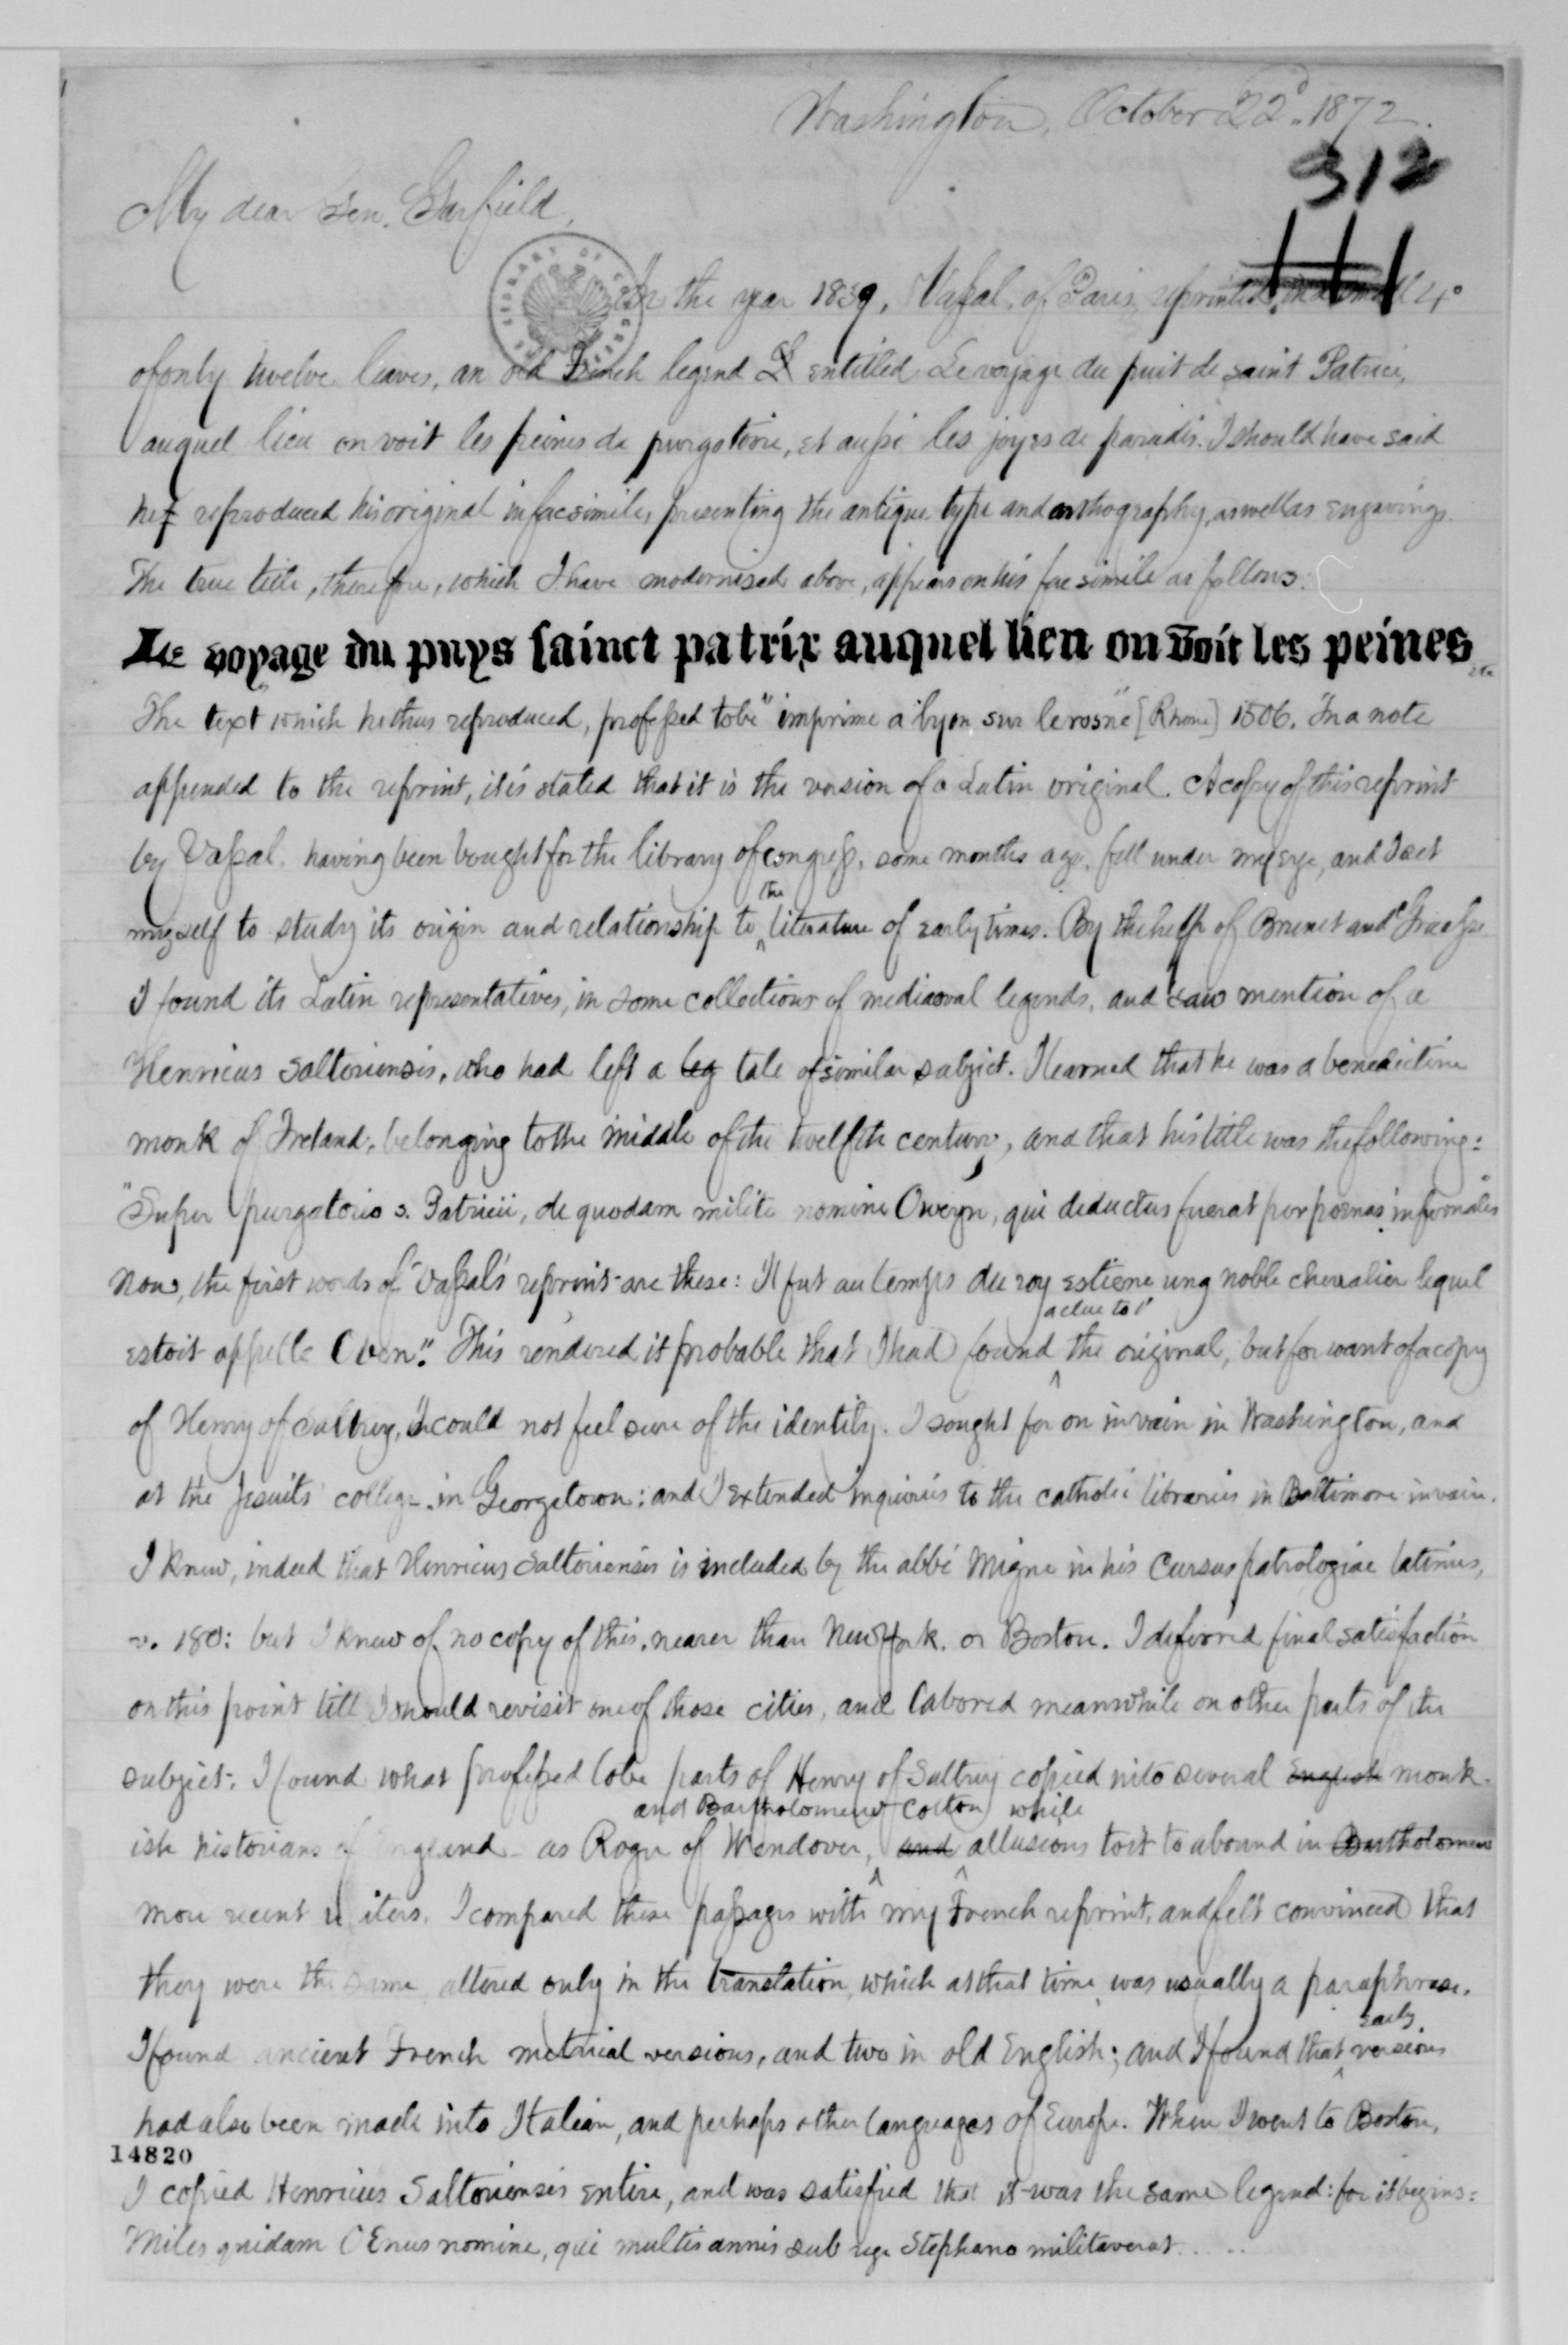 Washington, October 22d. 1872.
312
My dear Gen. Garfield,
LIBRARY OF CONGRESS
In the year 1839, Vassal, of Paris, reprinted, in a small 4o
of only twelve leaves, an old French legend L entitled Le voyage du puit de saint Patrice,
auquel lieu on voit les peines de purgatoire, et aussi les joyes de paradis. I should have said
he reproduced his original in facsimile, presenting the antique type and orthography, as well as engravings.
The true title, therefore, which I have modernised above, appears on his facsimile as follows:
Le voyage du puys sainct patrix auquel lieu on voit les peines etc
The text which he thus reproduced, professed to be "imprime a lyon sur le rosne" [Rhone] 1506. In a note
appended to the reprint, it is stated that it is the version of a Latin original. A copy of this reprint
by Vassal, having been bought for the library of congress, some months ago, fell under my eye, and I set
myself to study its origin and relationship to the literature of early times. By the help of Brunet and Graesse
I found its Latin representatives, in some collections of mediaeval legends, and saw mention of a
Henricus Salteriensis, who had left a leg tale of similar subject. I learned that he was a benedictine
monk of Ireland, belonging to the middle of the twelfth century, and that his title was the following:
"Super purgatorio s. Patricii, de quodam milite nomine Oweyn, qui deductus fuerat per poenas infernales"
Now, the first words of Vassal's reprint are these: Il fut au temps du roy estiene ung noble chevalier lequel
estoit appelle Oven." This rendered it probable that I had found a clue to the original, but for want of a copy
of Henry of Saltrey, I could not feel sure of the identity. I sought for on in vain in Washington, and
at the Jesuits' college in Georgetown; and I extended inquiries to the catholic libraries in Baltimore in vain.
I knew, indeed that Henricus Salteriensis is included by the abbé Migne in his Cursus patrologiae latinus,
v. 180: but I knew of no copy of this, nearer than New York. or Boston. I deferred final satisfaction
on this point till I should revisit one of those cities, and labored meanwhile on other parts of the
subject. I found what professed to be parts of Henry of Saltrey copied into several English monk-
ish historians of England - as Roger of Wendover, and Bartholomew Cotton while and allusions to it to abound in Bartholomew
more recent writers. I compared these passages with my French reprint, and felt convinced that
they were the same altered only in the translation, which at that time was usually a paraphrase.
I found ancient French metrical versions, and two in old English; and I found that early versions
had also been made into Italian, and perhaps other languages of Europe. When I went to Boston,
14820
I copied Henricus Salteriensis entire, and was satisfied that it was the same legend: for it begins:
Miles quidam OEnus nomine, qui multis annis sub rege Stephano militaverat.....